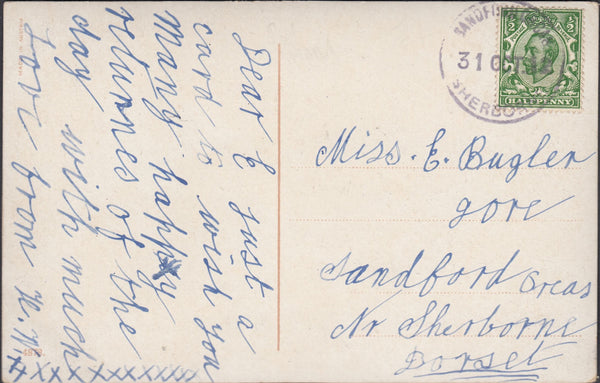 Dear E just a
card to wish you
many happy
returnes of the
day with much
love from
XXXXXXXXXX
SHERBO
31 OCT
½
½
HALFPENNY
Miss. E. Bugler
gore
Sandford Oreas
Nr Sherborne
Dorset